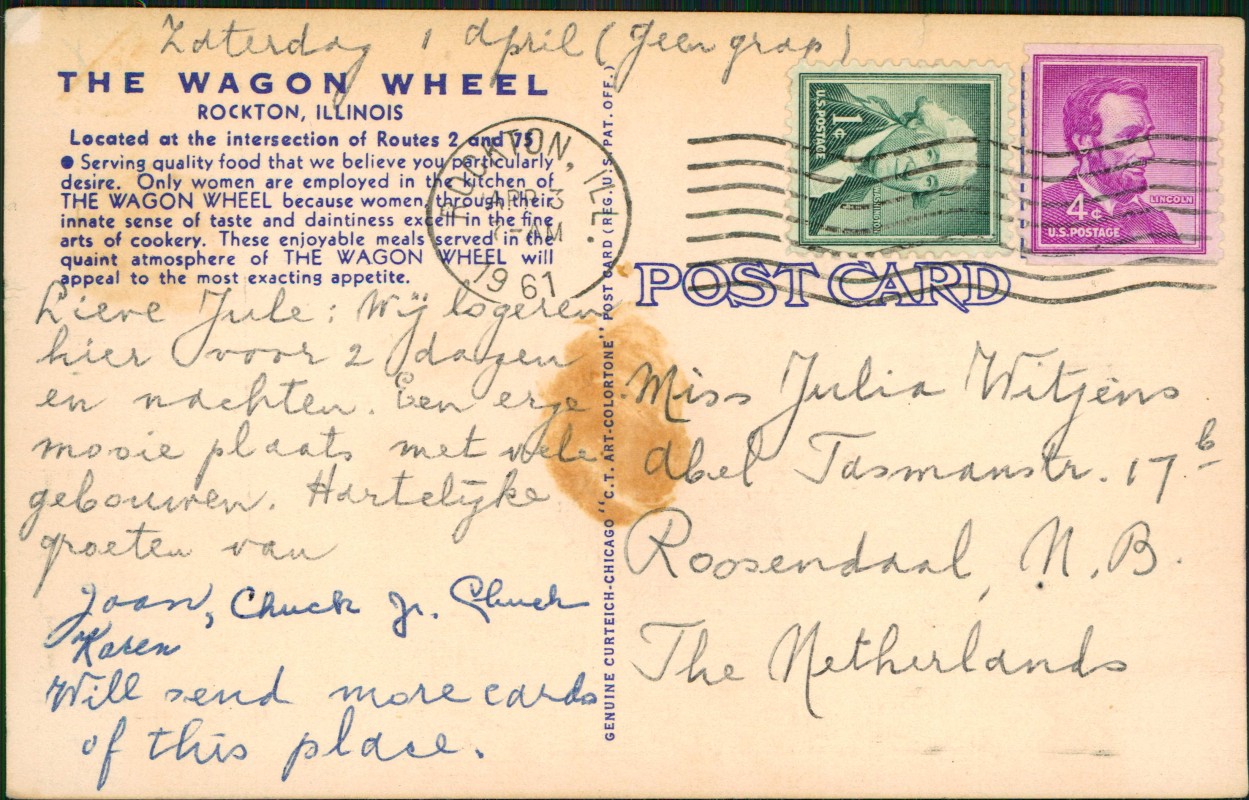 Zaterdag 1 April (Geen grap)
THE WAGON WHEEL
ROCKTON, ILLINOIS
Located at the intersection of Routes 2 and 75
● Serving quality food that we believe you particularly
desire. Only women are employed in the kitchen of
THE WAGON WHEEL because women, through their
innate sense of taste and daintiness excell in the fine
arts of cookery. These enjoyable meals served in the
quaint atmosphere of THE WAGON WHEEL will
appeal to the most exacting appetite.
Lieve Jule: Wij logeren
hier voor 2 dagen
en nachten. Een erge
mooie plaats met vele
gebouwen. Hartelijke
groeten van
Joan, Chuck Jr. Chuck
Karen
Will send more cards
of this place.
GENUINE CURTEICH-CHICAGO "C.T. ART-COLORTONE" POST CARD (REG. U.S. PAT. OFF.)
ROCKTON, ILL.
APR 3
AM
1961
U.S. POSTAGE
1¢
WASHINGTON
4¢
LINCOLN
U.S. POSTAGE
POST CARD
Miss Julia Witjens
Abel Tasmanstr. 17 b
Roosendaal, N.B.
The Netherlands